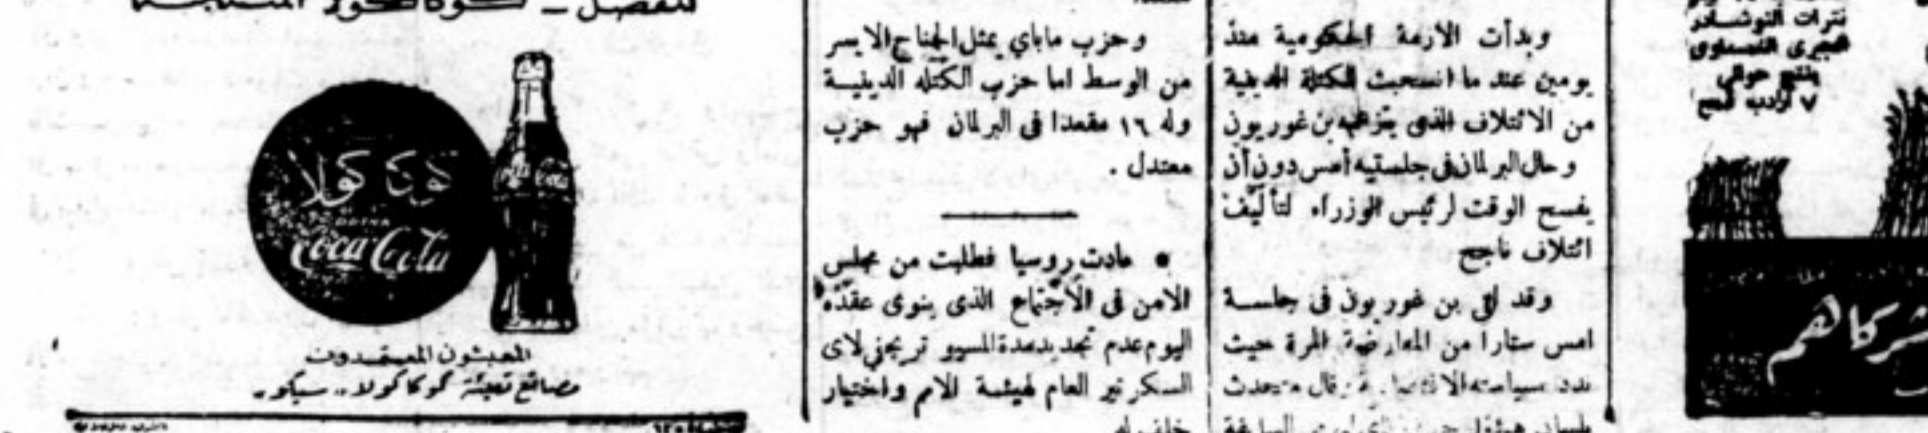 نترات النوشادر
الجيرى النمساوى
ينتج حوالى
٧ أرادب قمح
وبدأت الازمة الحكومية منذ
يومين عند ما انسحبت الكتلة الدينية
من الائتلاف الذى يتزعمه بن غوريون
وحال البرلمان فى جلستيه أمس دون أن
يفسح الوقت لرئيس الوزراء لتأليف
ائتلاف ناجح
وقد لقى بن غوريون فى جلسة
امس ستارا من المعارضة المرة حيث
ندد سياسته وقال متحدث
وحزب ماباي يمثل الجناح الايسر
من الوسط اما حزب الكتله الدينية
وله ١٦ مقعدا فى البرلمان فهو حزب
معتدل .
• عادت روسيا فطلبت من مجلس
الامن فى الاجتماع الذى ينوى عقده
اليوم عدم تجديد مدة المسيو تريجفى لاى
السكرتير العام لهيئة الامم واختيار
خلف له
كوكا كولا
Coca-Cola
المعبئون المعتمدون
مصانع تعبئة كوكاكولا.. سيكو..
شركاهم